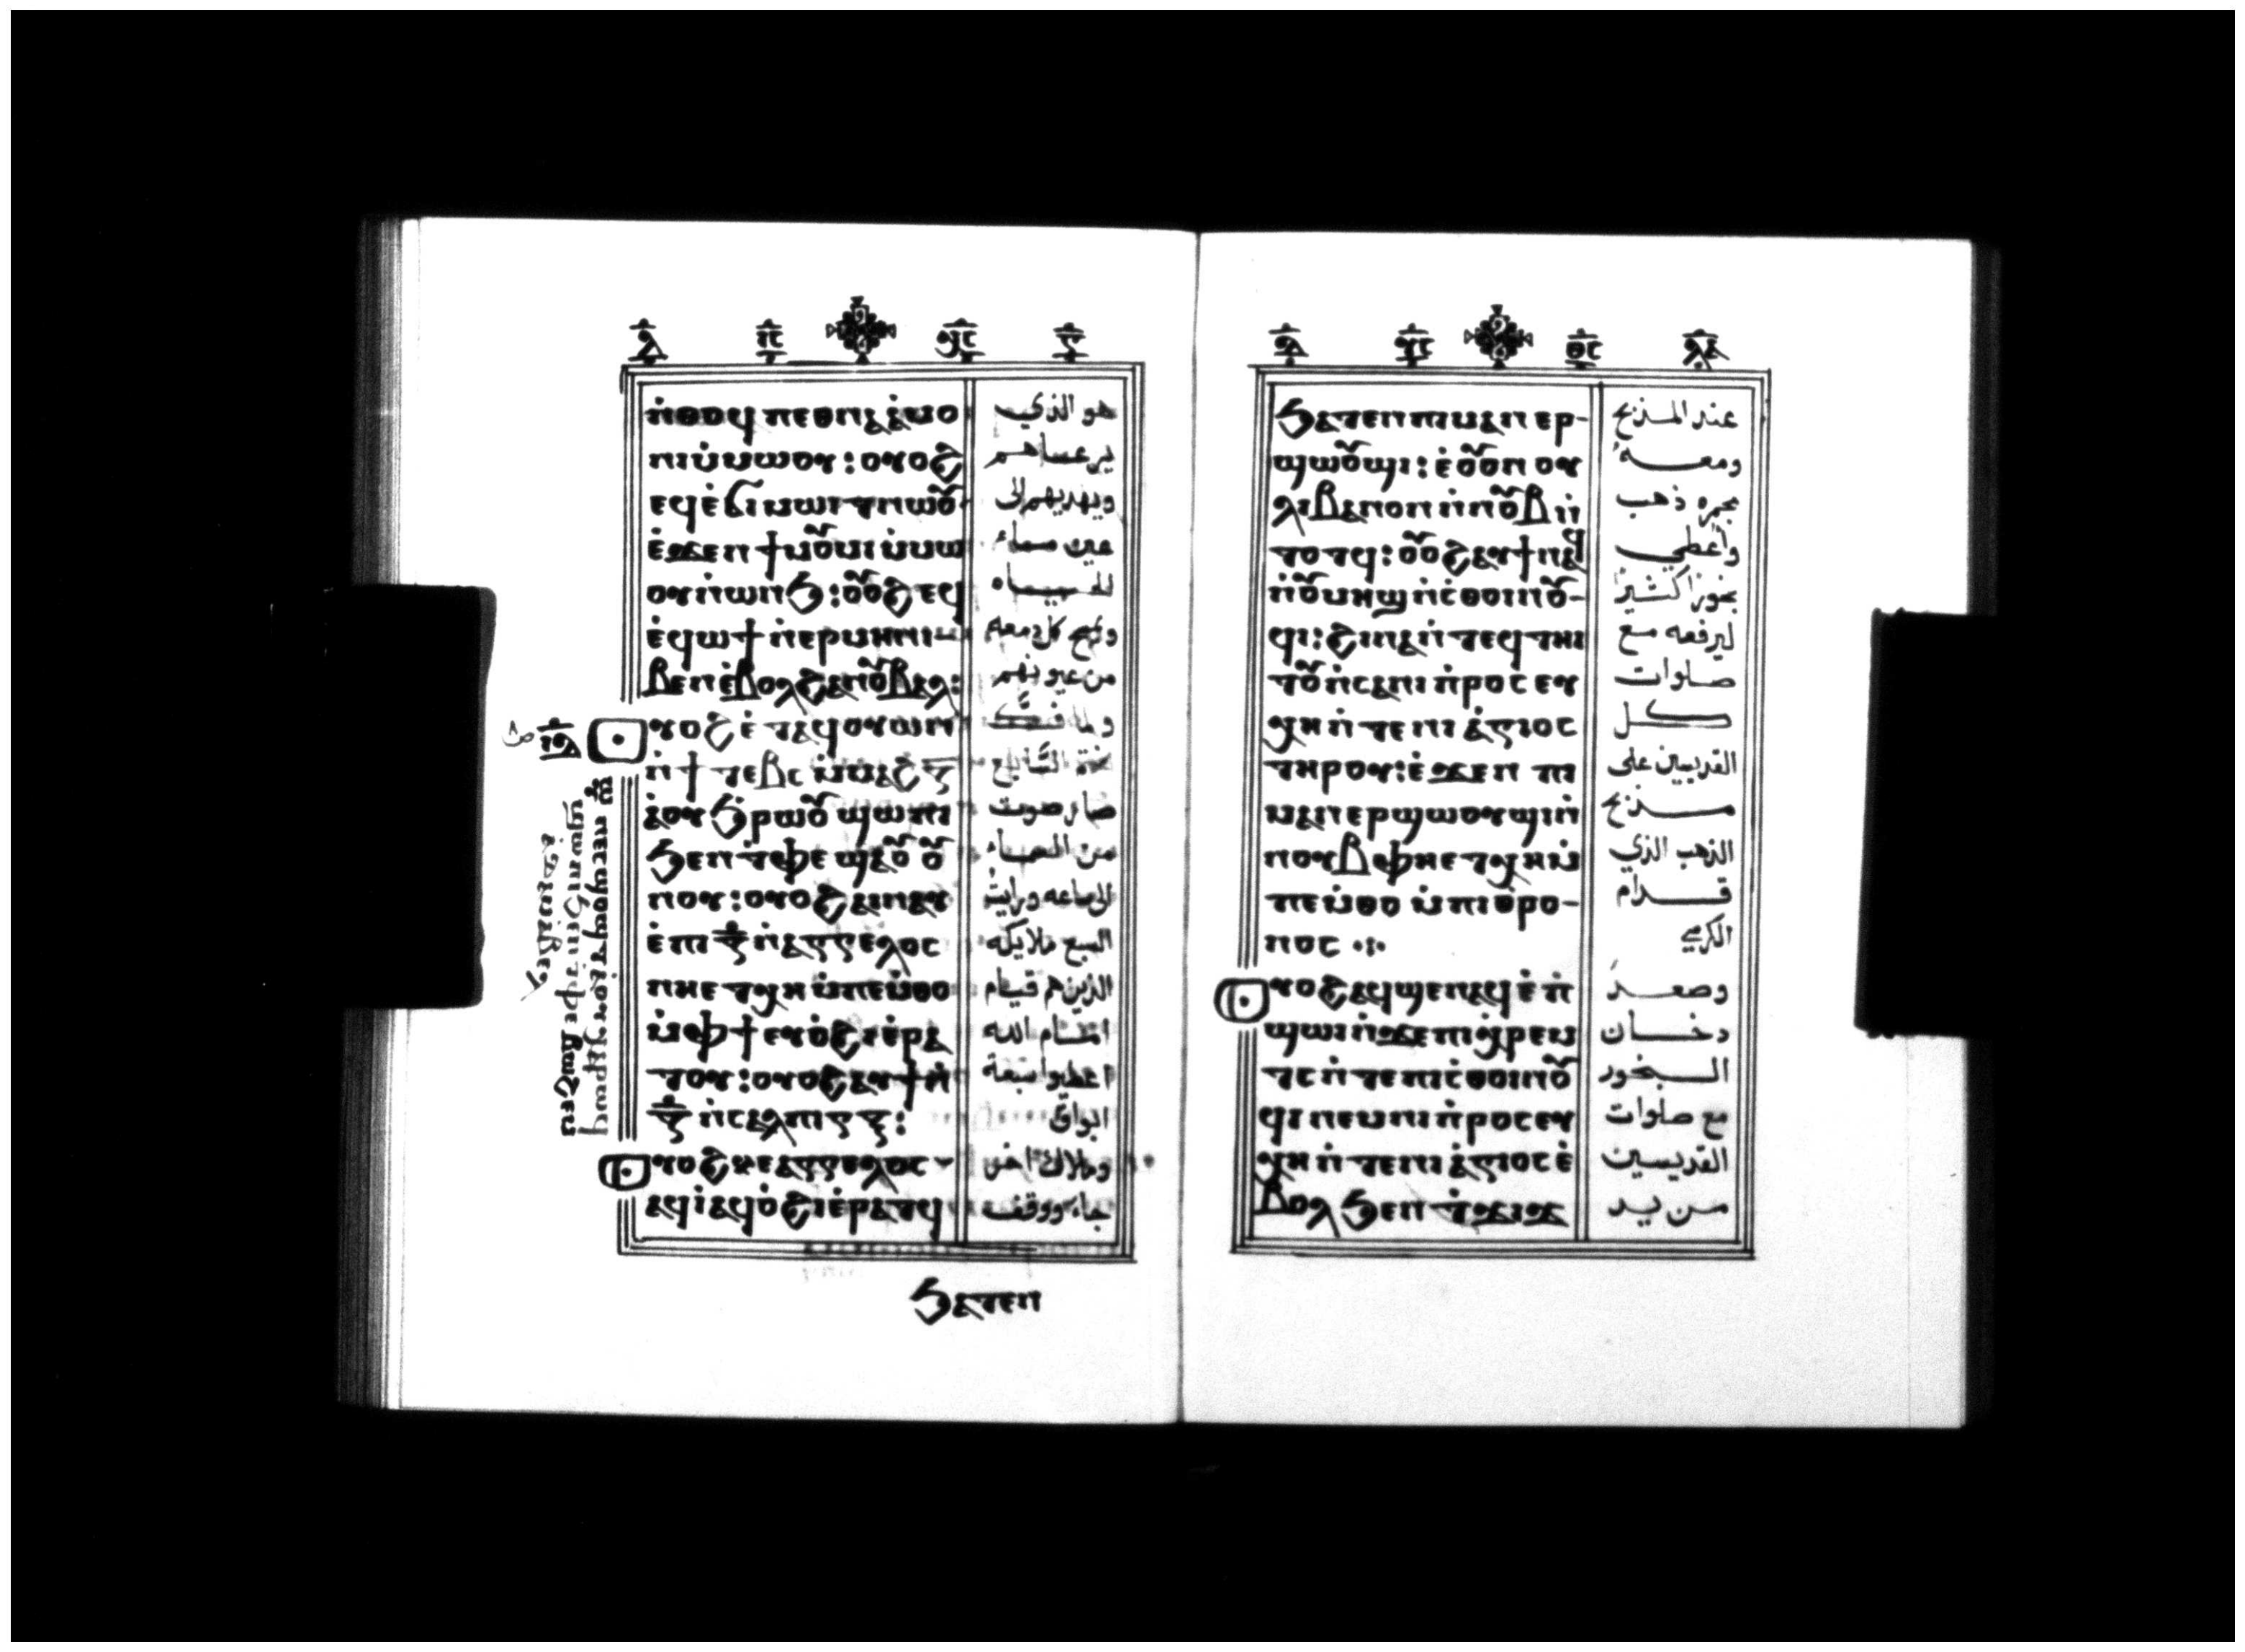 ⲛ̀ⲑⲟϥ ⲡⲉⲑⲛⲁⲁ̀ⲙⲟ
ⲛⲓ ⲙ̀ⲙⲱⲟⲩ : ⲟⲩⲟϩ
ⲉϥⲉ̀ϭⲓⲙⲱⲓⲧ ⲛⲱⲟⲩ
ⲉ̀ϫⲉⲛ ϯⲙⲟⲩⲙⲓ ⲙ̀ⲙⲱ
ⲟⲩ ⲛ̀ⲱⲛϧ : ⲟⲩⲟϩ ⲉϥ
ⲉ̀ϥⲱϯ ⲛ̀ⲉⲣⲙⲏ ⲛⲓ-
ⲃⲉⲛ ⲉ̀ⲃⲟⲗ ϩⲁ ⲛⲟⲩⲃⲁⲗ :
ⲟⲩⲟϩ ⲉ̀ⲧⲁϥⲟⲩⲱⲛ
ⲛ̀ϯⲧⲉⲃⲥ ⲙ̀ⲙⲁϩ ⲍ̄
ⲁ̀ⲟⲩϧ̀ⲣⲱⲟⲩ ϣⲱⲡⲓ
ϧⲉⲛ ⲧⲫⲉ ϣⲁ ⲟⲩⲟⲩ
ⲛⲟⲩ : ⲟⲩⲟϩ ⲁⲓⲛⲁⲩ
ⲉ̀ⲡⲓ ⲍ̄ ⲛ̀ⲁⲅⲅⲉⲗⲟⲥ
ⲛⲏⲉⲧⲭⲏ ⲙ̀ⲡⲉⲙ̀ⲑⲟ
ⲙ̀ⲫϯ ⲉⲩⲟ̀ϩⲓ ⲉ̀ⲣⲁ
ⲧⲟⲩ : ⲟⲩⲟϩ ⲁⲩϯ ⲛ̀
ⲍ̄ ⲛ̀ⲥⲁⲗⲡⲓⲅⲅⲁ :
ⲟⲩⲟϩ ⲕⲉⲁⲅⲅⲉⲗⲟⲥ
ⲁϥⲓ̀ ⲁϥⲟ̀ϩⲓ ⲉ̀ⲣⲁⲧϥ
هو الذي
يرعساهم
ويهديهم الى
عين مساء
الحيساه
من عيونهم
صار صوت
من السماء
السبع ملايكه
الذين هم قيام
امام الله
اعطيوا سبعة
ابواق
وملاك اخر
جاء ووقف
ϧⲁⲧⲉⲛ
ϧⲁⲧⲉⲛ ⲡⲓⲙⲁⲛⲉⲣ-
ϣⲱⲟⲩϣⲓ : ⲉ̀ⲟⲩⲟⲛ ⲟⲩ
ⲗⲓⲃⲁⲛⲟⲛ ⲛ̀ⲛⲟⲩⲃ ⲛ̀
ⲧⲟⲧϥ : ⲟⲩⲟϩ ⲁⲩϯ ⲛⲁϥ
ⲛ̀ⲟⲩⲙⲏϣ ⲛ̀ⲥ̀ⲑⲟⲓⲛⲟⲩ-
ϥⲓ : ϩⲓⲛⲁ ⲛ̀ⲧⲉϥⲧⲏⲓ
ⲧⲟⲩ ⲛ̀ⲥⲁ ⲛⲓⲡ̀ⲣⲟⲥⲉⲩ
ⲭⲏ ⲛ̀ⲧⲉ ⲛⲓⲁ̀ⲅⲓⲟⲥ
ⲧⲏⲣⲟⲩ : ⲉ̀ϫⲉⲛ ⲡⲓ
ⲙⲁⲛⲉⲣϣⲱⲟⲩϣⲓ ⲛ̀
ⲛⲟⲩⲃ ⲫⲏⲉⲧⲭⲏ ⲙ̀
ⲡⲉⲙ̀ⲑⲟ ⲙ̀ⲡⲓⲑ̀ⲣⲟ-
ⲛⲟⲥ
ⲟⲩⲟϩ ⲁϥϣⲉⲛⲁϥ ⲉ̀ⲡ̀
ϣⲱⲓ ⲛ̀ϫⲉ ⲡⲓⲭ̀ⲣⲉⲙ
ⲧⲥ ⲛ̀ⲧⲉ ⲡⲓⲥ̀ⲑⲟⲓⲛⲟⲩ
ϥⲓ ⲛⲉⲙ ⲛⲓⲡ̀ⲣⲟⲥⲉⲩ
ⲭⲏ ⲛ̀ⲧⲉ ⲛⲓⲁ̀ⲅⲓⲟⲥ ⲉ̀
ⲃⲟⲗ ϧⲉⲛ ⲧϫⲓϫ
عند المذبح
ومعه
مجمره ذهب
واعطي
بخورا كثيرا
ليرفعه مع
صلوات
كل
القديسين على
مذبح
الذهب الذي
قدام
الكرسي
وصعد
دخان
البخور
مع صلوات
القديسين
من يد